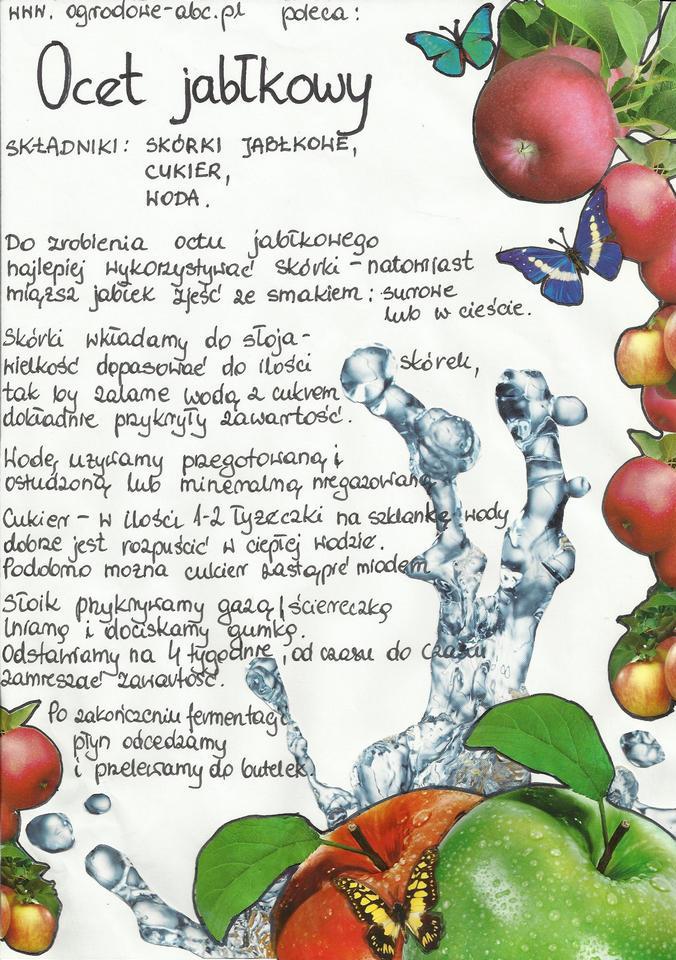 www. ogrodowe-abc.pl poleca:
Ocet jabłkowy
SKŁADNIKI: SKÓRKI JABŁKOWE,
CUKIER,
WODA.
Do zrobienia octu jabłkowego
najlepiej wykorzystywać skórki – natomiast
miąższ jabłek zjeść ze smakiem: surowe
lub w cieście.
Skórki wkładamy do słoja –
wielkość dopasować do ilości skórek,
tak by zalane wodą z cukrem
dokładnie przykryły zawartość.
Wodę używamy przegotowaną i
ostudzoną lub mineralną niegazowaną.
Cukier – w ilości 1-2 łyżeczki na szklankę wody
dobrze jest rozpuścić w ciepłej wodzie.
Podobno można cukier zastąpić miodem.
Słoik przykrywamy gazą / ściereczką
lnianą i dociskamy gumką.
Odstawiamy na 4 tygodnie, od czasu do czasu
zamieszać zawartość.
Po zakończeniu fermentacji
płyn odcedzamy
i przelewamy do butelek.